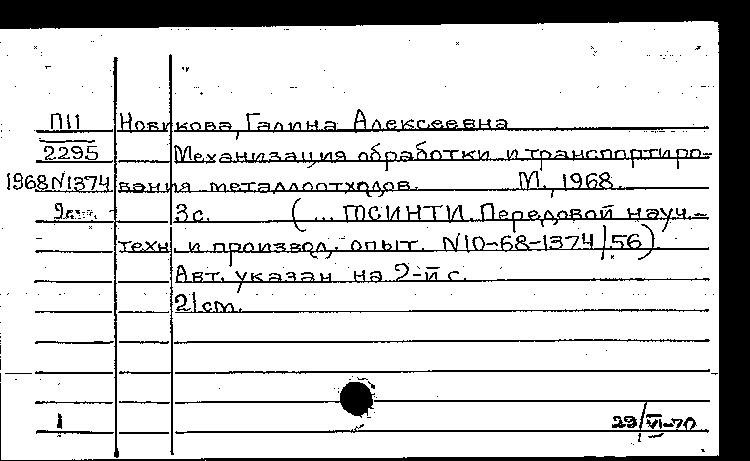 П11 Новикова, Галина Алексеевна
2295 Механизация обработки и транспортиро-
1968N1374 вания металлоотходов. М., 1968.
3с. (... ГОСИНТИ. Передовой науч.-
техн. и производ. опыт. N10-68-1374/56)
Авт. указан на 2-й с.
21см.
1 29/VI-70